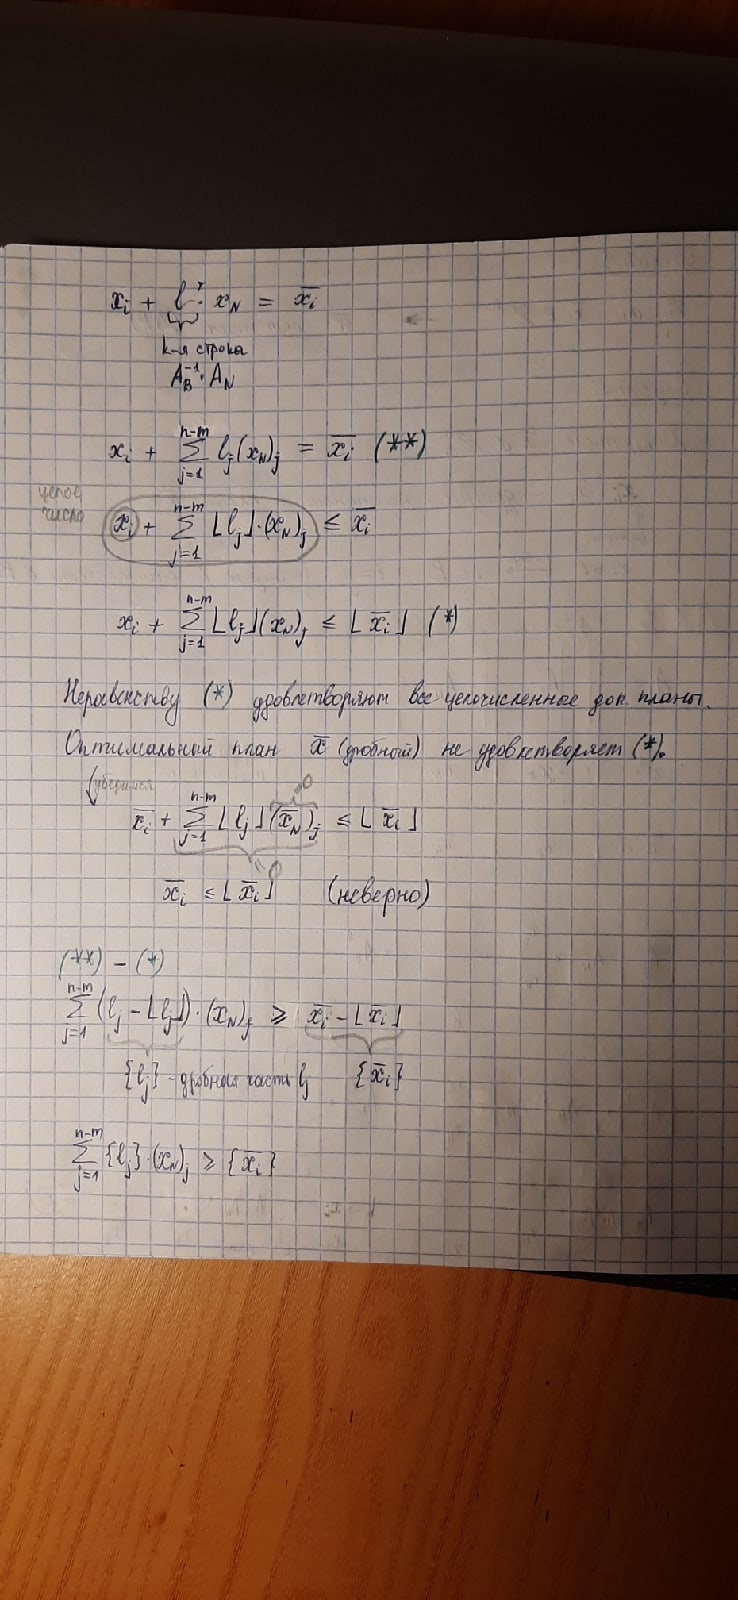 xᵢ + l · x_N = x̄ᵢ
k-я строка
A_B⁻¹ · A_N
xᵢ + ∑_{j=1}^{n-m} lⱼ(x_N)ⱼ = x̄ᵢ (**)
целое
число
xᵢ + ∑_{j=1}^{n-m} ⌊lⱼ⌋·(x_N)ⱼ ≤ x̄ᵢ
xᵢ + ∑_{j=1}^{n-m} ⌊lⱼ⌋(x_N)ⱼ ≤ ⌊x̄ᵢ⌋ (*)
Неравенству (*) удовлетворяют все целочисленные доп. планы.
Оптимальный план x̄ (дробный) не удовлетворяет (*).
убедимся
=0
x̄ᵢ + ∑_{j=1}^{n-m} ⌊lⱼ⌋(x̄_N)ⱼ ≤ ⌊x̄ᵢ⌋
=0
x̄ᵢ ≤ ⌊x̄ᵢ⌋ (неверно)
(**) - (*)
∑_{j=1}^{n-m} (lⱼ - ⌊lⱼ⌋)·(x_N)ⱼ ≥ x̄ᵢ - ⌊x̄ᵢ⌋
{lⱼ} - дробная часть lⱼ {x̄ᵢ}
∑_{j=1}^{n-m} {lⱼ}·(x_N)ⱼ ≥ {x̄ᵢ}